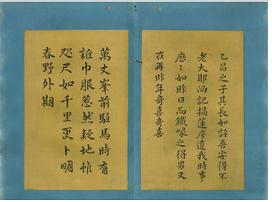 乙昌之子其長如許吾安得不
老大耶尚記摛蓮房遺我時事
歷〻如昨日而鐵
之得男又
在再昨年奇喜奇喜
萬丈峯前駐馬時有
誰巾服
然疑地
咫尺如千里更卜明
春野外期